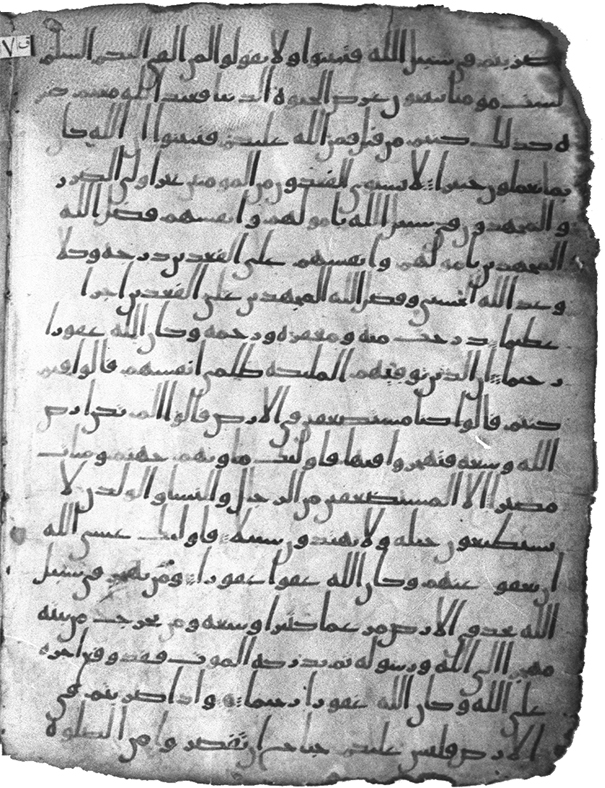 ضربتم في سبيل الله فتبينوا ولا تقولوا لمن القى اليكم السلم
لست مومنا تبتغون عرض الحيوه الدنيا فعند الله مغنم كثير
ه كذلك كنتم من قبل فمن الله عليكم فتبينوا ان الله كان
بما تعملون خبيرا لا يستوي القعدون من المومنين غير اولي الضرر
والمجهدون في سبيل الله بامولهم وانفسهم فضل الله
المجهدين بامولهم وانفسهم على القعدين درجه وكلا
وعد الله الحسنى وفضل الله المجهدين على القعدين اجرا
عظيما درجت منه ومغفره ورحمه وكان الله غفورا
رحيما ان الذين توفيهم الملئكه ظلمي انفسهم قالوا فيم
كنتم قالوا كنا مستضعفين في الارض قالوا الم تكن ارض
الله وسعه فتهجروا فيها فاولئك ماويهم جهنم وسات
مصيرا الا المستضعفين من الرجل والنسا والولدن لا
يستطيعون حيله ولا يهتدون سبيلا فاولئك عسى الله
ان يعفو عنهم وكان الله عفوا غفورا ومن يهجر في سبيل
الله يجد في الارض مرغما كثيرا وسعه ومن يخرج من بيته
مهجرا الى الله ورسوله ثم يدركه الموت فقد وقع اجره
على الله وكان الله غفورا رحيما واذا ضربتم في
الارض فليس عليكم جناح ان تقصروا من الصلوه